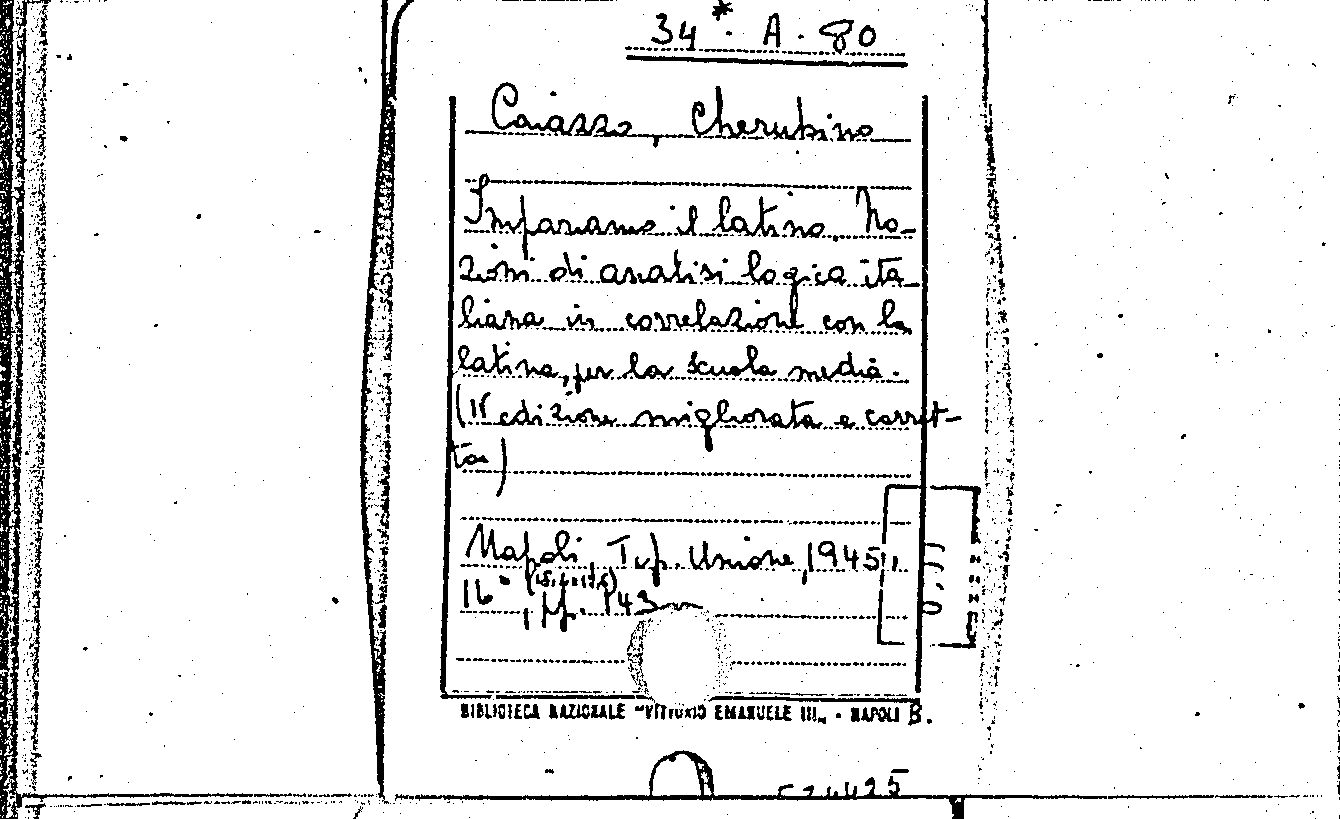 34 * A . 80
Caiazzo, Cherubino
Impariamo il latino. No-
zioni di analisi logica ita-
liana in correlazione con la
latina, per la scuola media.
(IV edizione migliorata e corret-
ta)
Napoli, Tip. Unione, 1945,
16° , pp. 143
BIBLIOTECA NAZIONALE "VITTORIO EMANUELE III" - NAPOLI B.